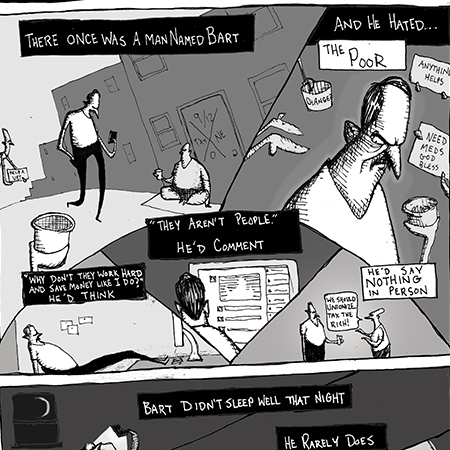 THERE ONCE WAS A MAN NAMED BART
AND HE HATED...
THE POOR
CHANGE?
ANYTHING
HELPS
NEED
MEDS
GOD
BLESS
9/12
"THEY AREN'T PEOPLE."
HE'D COMMENT
"WHY DON'T THEY WORK HARD
AND SAVE MONEY LIKE I DO?"
HE'D THINK
HE'D SAY
NOTHING
IN PERSON
WE SHOULD
UNIONIZE
TAX THE
RICH!
BART DIDN'T SLEEP WELL THAT NIGHT
HE RARELY DOES